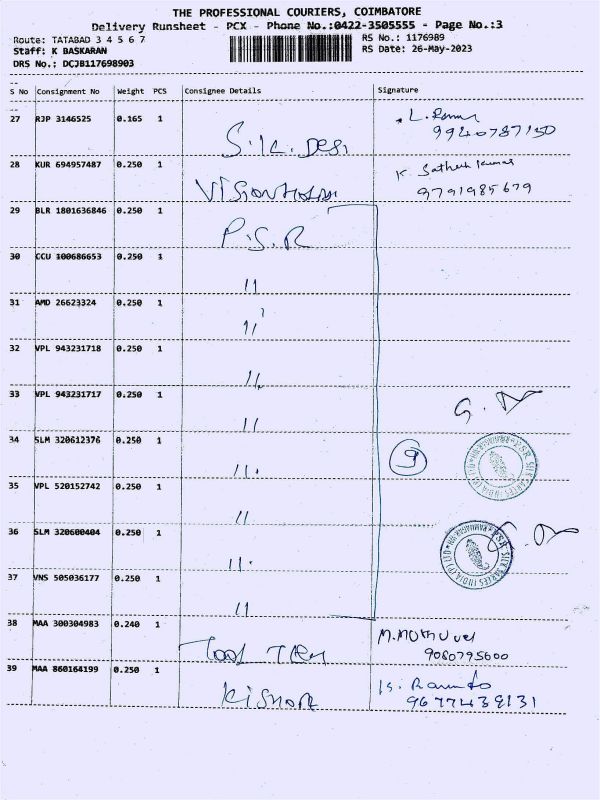 THE PROFESSIONAL COURIERS, COIMBATORE
Delivery Runsheet - PCX - Phone No.:0422-3505555 - Page No.:3
Route: TATABAD 3 4 5 6 7
RS No.: 1176989
Staff: K BASKARAN
RS Date: 26-May-2023
DRS No.: DCJB117698903
S No Consignment No Weight PCS Consignee Details Signature
27 RJP 3146525 0.165 1 S.K. Desi
9940787150
28 KUR 694957487 0.250 1 K Sathesh Kumar
9791985679
29 BLR 1801636846 0.250 1 P.S.R
30 CCU 100686653 0.250 1 11
31 AMD 26623324 0.250 1 11
32 VPL 943231718 0.250 1 11
33 VPL 943231717 0.250 1 11
34 SLM 320612376 0.250 1 11 9
35 VPL 520152742 0.250 1 11
36 SLM 320600404 0.250 1 11
37 VNS 505036177 0.250 1 11
38 MAA 300304983 0.240 1 Tool M.Muthuvel
9080795600
39 MAA 860164199 0.250 1 Kishore
9677438131